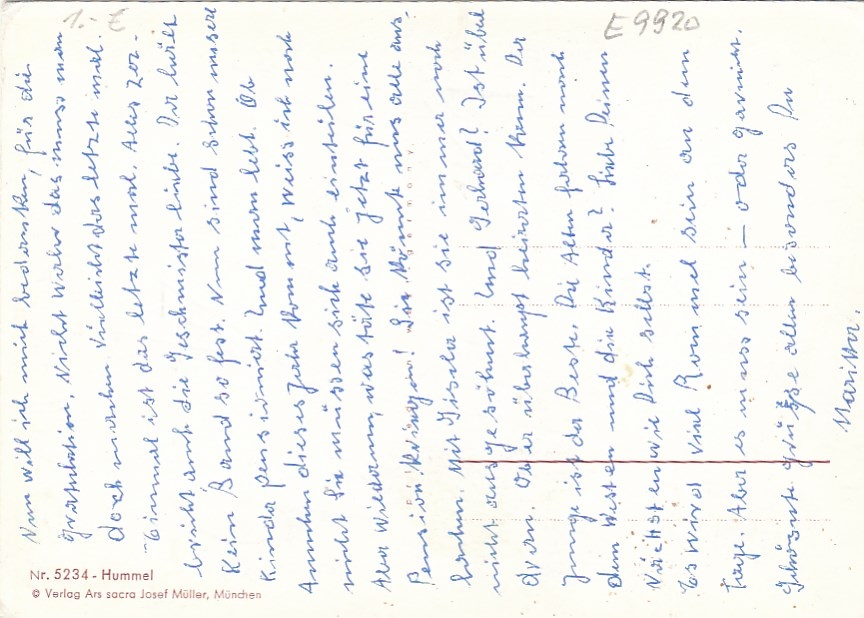 1.- €
E 9920
Nun will ich mich bedanken, für die
Gratulation. Nicht wahr das muss man
doch machen. Vielleicht das letzte mal.
Einmal ist das letzte mal. Alles zer-
bricht auch die Geschwisterliebe. Da hält
kein Band so fest. Nun sind schon unsere
Kinder pensioniert. Und man lebt. Ob
Annchen dieses Jahr kommt, weiss ich noch
nicht. Sie müssen sich auch einteilen.
Aber wiederum, was täte sie jetzt für eine
Pension kriegen! Sie könnt uns alle aus-
lachen. Mit Gisela ist sie immer noch
nicht ausgesöhnt. Und Gerhard? Ist übel
dran. Ob er überhaupt heiraten kann. Der
Junge ist der Beste. Die Alten fahren nach
dem Westen und die Kinder? Liebe Deinen
Nächsten wie Dich selbst.
Es wird viel Rommel sein an dem
Tage. Aber es muss sein – oder garnicht.
Schönste grüße allen besonders Du
Marichen
Nr. 5234 - Hummel
© Verlag Ars sacra Josef Müller, München